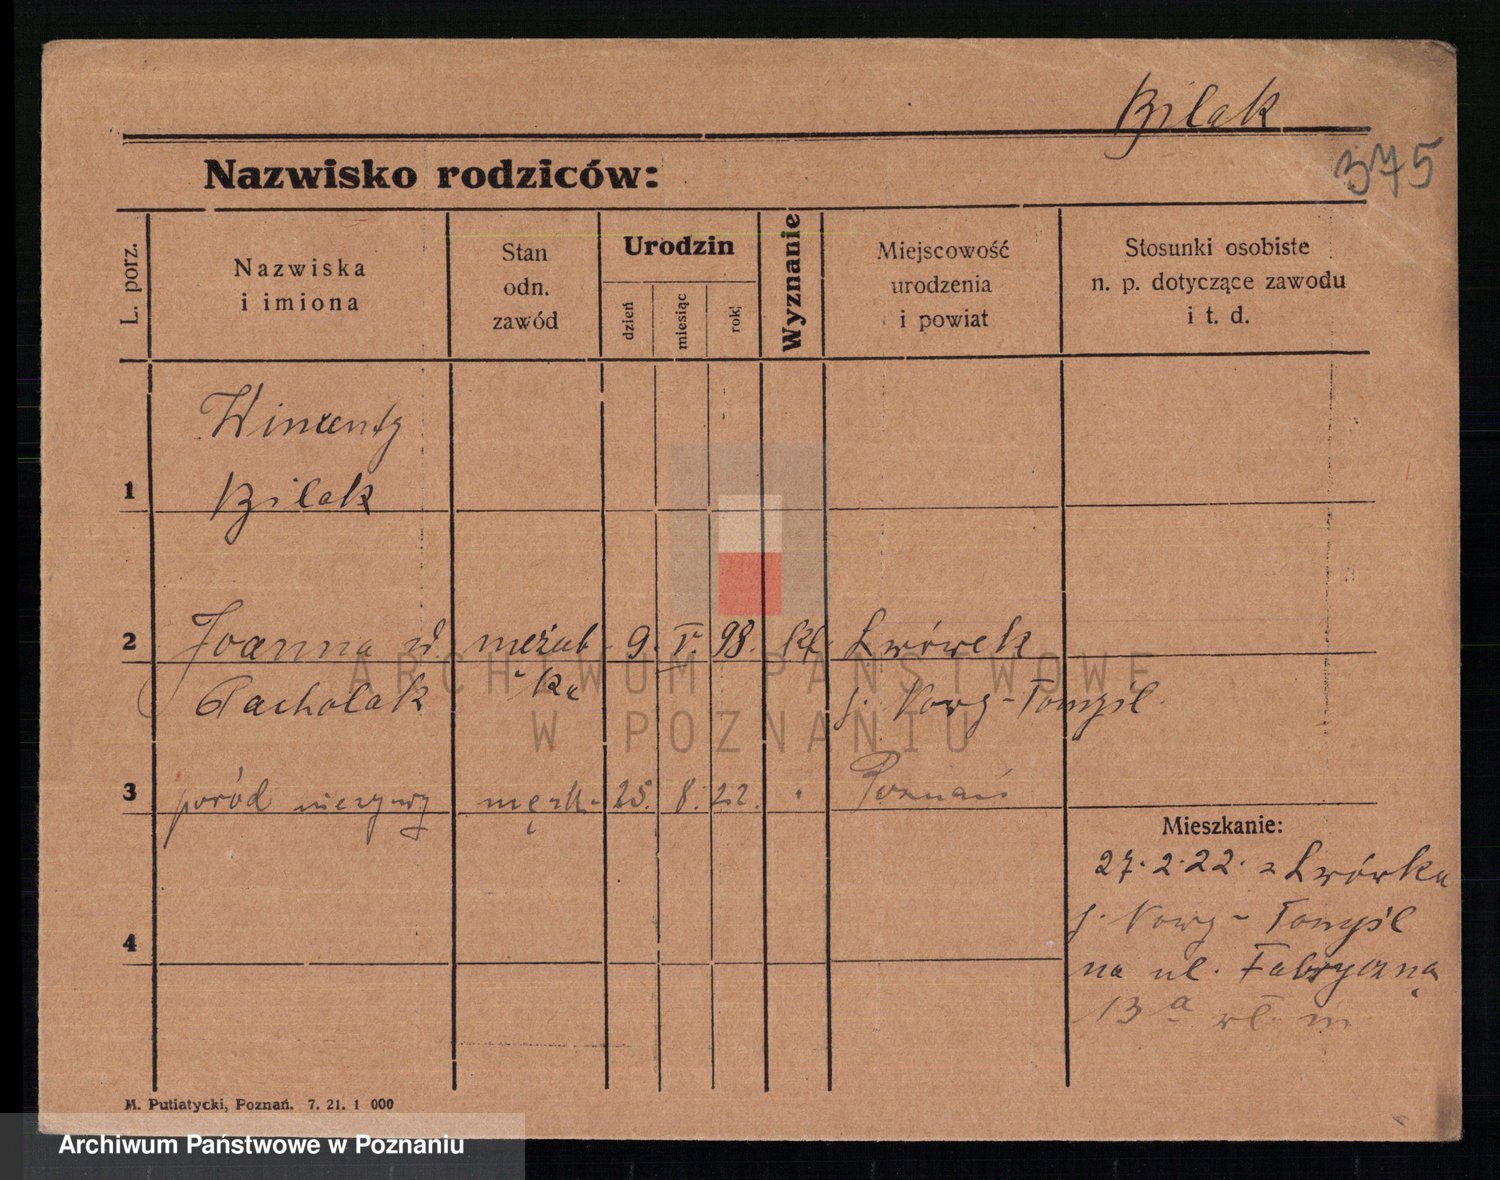 Bilak
375
Nazwisko rodziców:
L. porz.
Nazwiska
i imiona
Stan
odn.
zawód
Urodzin
dzień
miesiąc
rok
Wyznanie
Miejscowość
urodzenia
i powiat
Stosunki osobiste
n. p. dotyczące zawodu
i t. d.
Wincenty
1 Bilak
2 Joanna zd. mężat- 9. V. 98. kt. Lwówek
Pacholak ka p. Nowy-Tomyśl
3 poród nieżywy męsk. 25. 8. 22. " Poznań
Mieszkanie:
27.2.22. z Lwówka
p. Nowy-Tomyśl
4
na ul. Fabryczną
13a
M. Putiatycki, Poznań. 7. 21. 1 000
ARCHIWUM PAŃSTWOWE
W POZNANIU
Archiwum Państwowe w Poznaniu